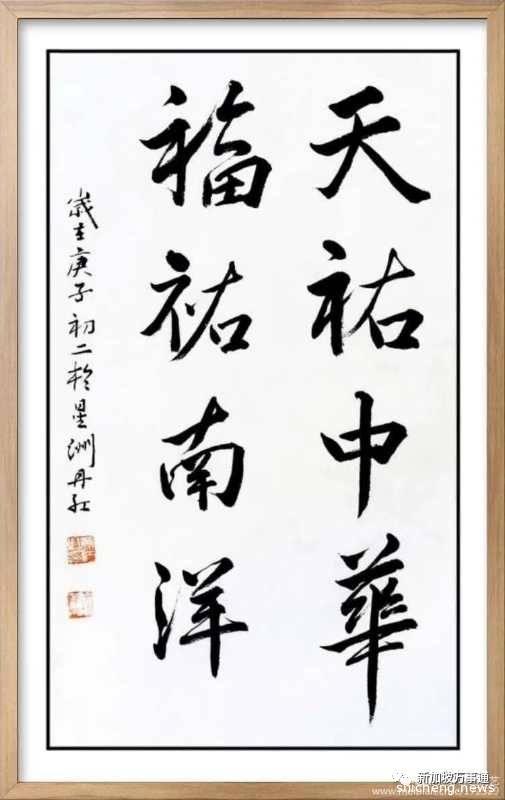 天祐中華
福祐南洋
歲在庚子初二於星洲丹紅
新加坡万事通
shicheng.news